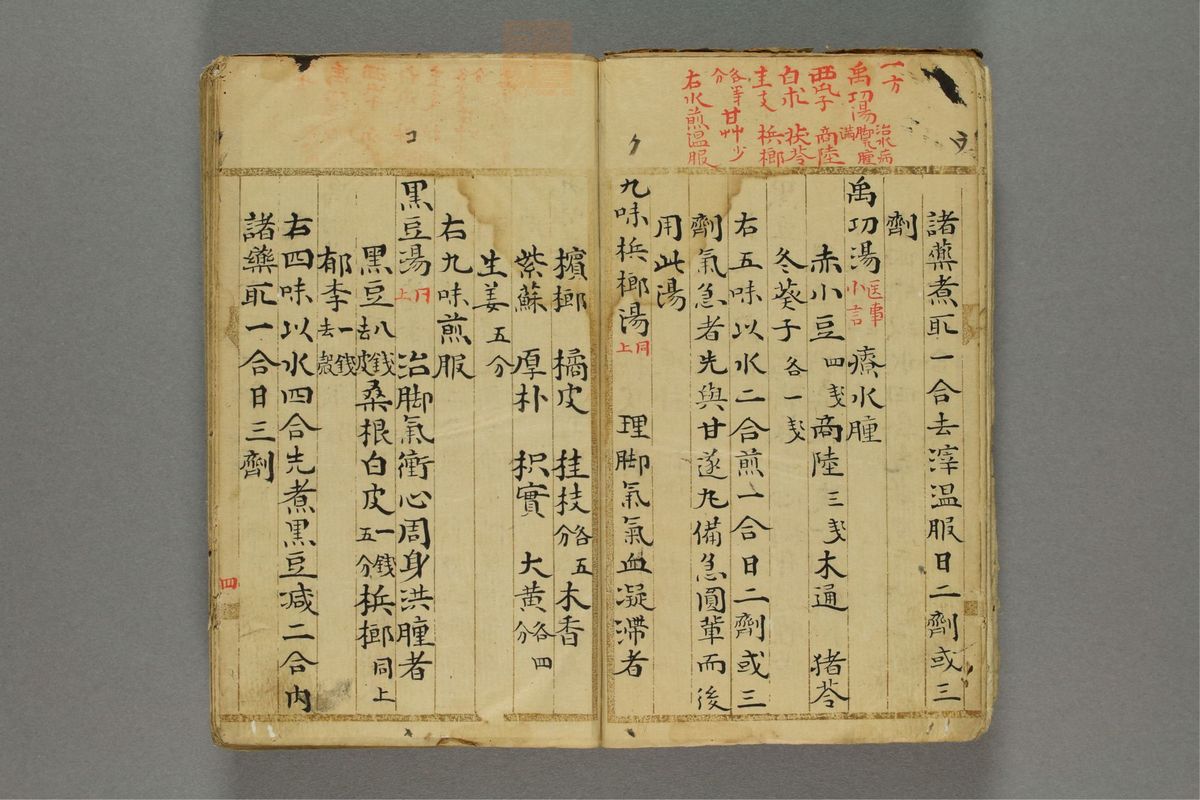 一方
禹功湯 治水病脚氣腫満
西瓜子 商陸
白朮 茯苓
圭支 梹榔
各等分 甘艸少
右水煎温服
諸藥煮取一合去滓温服日二劑或三
劑
禹功湯 医事小言 療水腫
赤小豆 四戔 商陸 三戔 木通 猪苓
冬葵子 各一戔
右五味以水二合煎一合日二劑或三
劑氣急者先與甘遂丸備急圓輩而後
用此湯
九味梹榔湯 同上 理脚氣氣血凝滞者
檳榔 橘皮 桂枝 各五分 木香
紫蘇 厚朴 枳實 大黄 各四分
生姜 五分
右九味煎服
黒豆湯 同上 治脚氣衝心周身洪腫者
黒豆 八錢去皮 桑根白皮 一錢五分 梹榔 同上
郁李 一錢去殻
右四味以水四合先煮黒豆減二合内
諸藥取一合日三劑
コ
ク
四